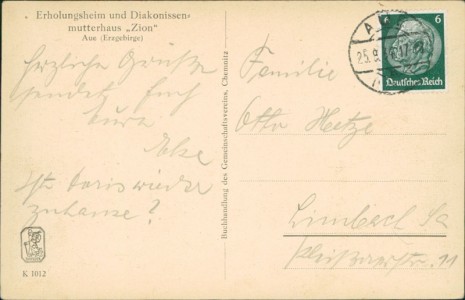 Erholungsheim und Diakonissen-
mutterhaus „Zion"
Aue (Erzgebirge)
Herzliche Grüße
sendet Euch
eure
Else
Ist wieder
zuhause?
K 1012
Buchhandlung des Gemeinschaftsvereins, Chemnitz
A
25.9.
6
Deutsches Reich
Familie
Otto Hetze
Limbach Sa
11